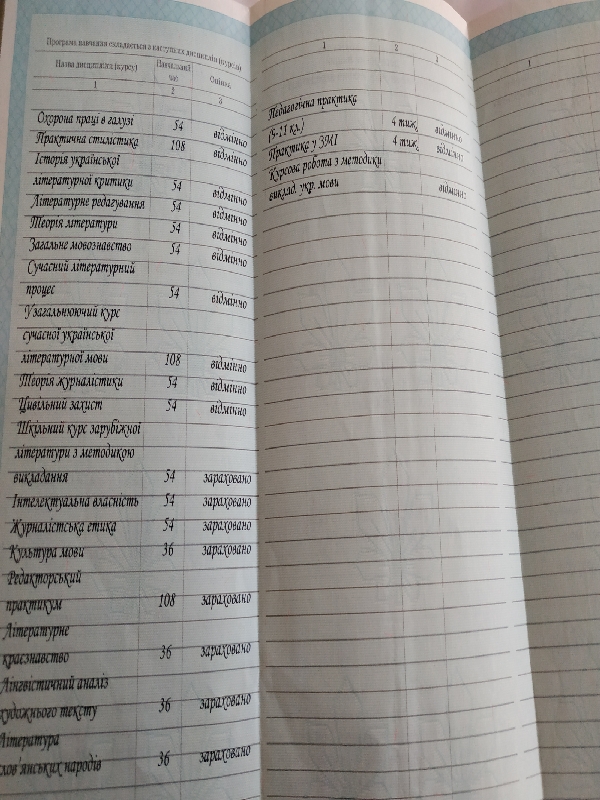 Програма навчання складається з наступних дисциплін (курсів)
Назва дисципліни (курсу) Навчальні час Оцінка
1 2 3
Охорона праці в галузі 54 відмінно
Практична стилістика 108 відмінно
Історія української
літературної критики 54 відмінно
Літературне редагування 54 відмінно
Теорія літератури 54 відмінно
Загальне мовознавство 54 відмінно
Сучасний літературний
процес 54 відмінно
Узагальнюючий курс
сучасної української
літературної мови 108 відмінно
Теорія журналістики 54 відмінно
Цивільний захист 54 відмінно
Шкільний курс зарубіжної
літератури з методикою
викладання 54 зараховано
Інтелектуальна власність 54 зараховано
Журналістська етика 54 зараховано
Культура мови 36 зараховано
Редакторський
практикум 108 зараховано
Літературне
краєзнавство 36 зараховано
Лінгвістичний аналіз
художнього тексту 36 зараховано
Література
слов'янських народів 36 зараховано
1 2 3
Педагогічна практика
(9-11 кл.) 4 тиж. відмінно
Практика у ЗМІ 4 тиж. відмінно
Курсова робота з методики
виклад. укр. мови відмінно
1